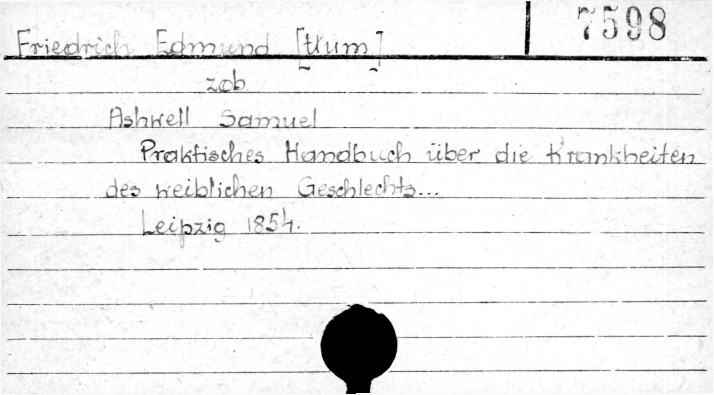 Friedrich Edmund [tłum.]
7598
zob.
Ashwell Samuel
Praktisches Handbuch über die Krankheiten
des weiblichen Geschlechts...
Leipzig 1854.